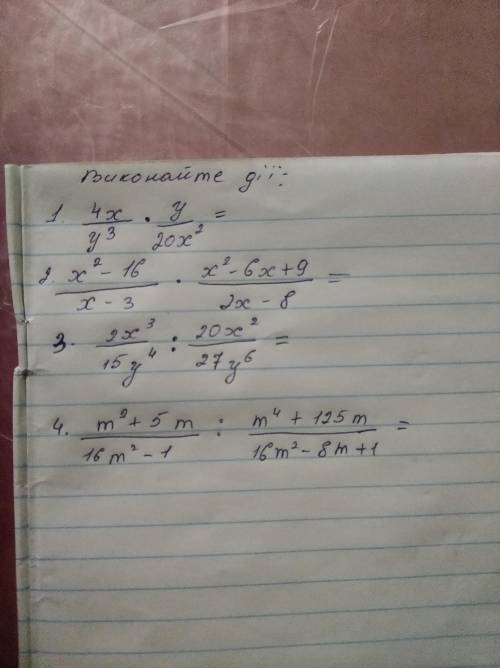 Виконайте дії:
1. 4x/y³ · y/20x² =
2. x² - 16/x - 3 · x² - 6x + 9/2x - 8 =
3. 2x³/15y⁴ : 20x²/27y⁶ =
4. m² + 5m/16m² - 1 : m⁴ + 125m/16m² - 8m + 1 =